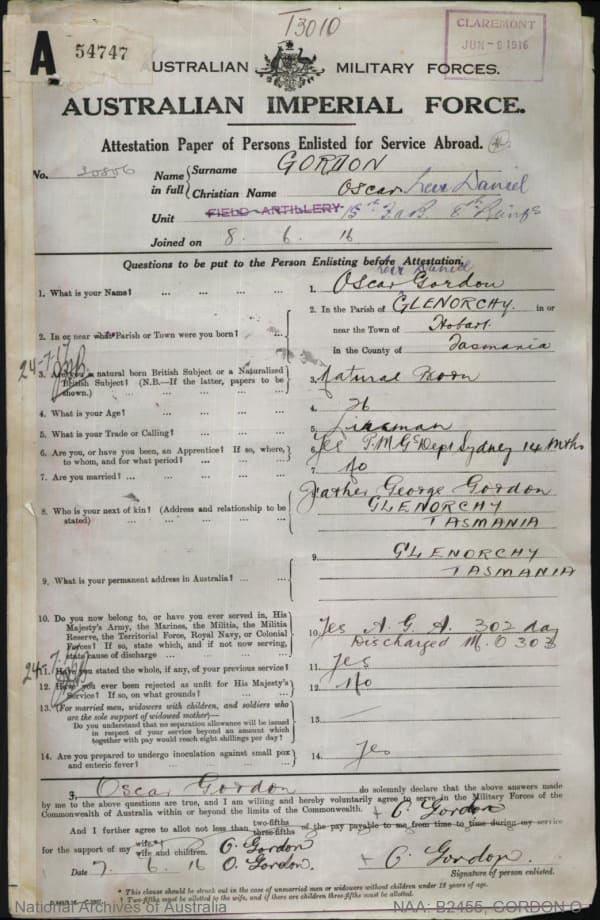 T3010
CLAREMONT
JUN -9 1916
A 54747
AUSTRALIAN MILITARY FORCES.
AUSTRALIAN IMPERIAL FORCE.
Attestation Paper of Persons Enlisted for Service Abroad.
No. 30806 Name in full { Surname GORDON
Christian Name Oscar Levi Daniel
Unit FIELD ARTILLERY 15th FAB 8th Reinfs
Joined on 8. 6. 16
Questions to be put to the Person Enlisting before Attestation.
Levi Daniel
1. What is your Name? ... ... ... ... 1. Oscar Gordon
2. In or near what Parish or Town were you born? ... 2. In the Parish of GLENORCHY. in or
near the Town of Hobart.
in the County of Tasmania
24-7-17
3. Are you a natural born British Subject or a Naturalized
British Subject? (N.B.—If the latter, papers to be
shown.) 3. Natural Born
4. What is your Age? 4. 26
5. What is your Trade or Calling? 5. Lineman
6. Are you, or have you been, an Apprentice? If so, where,
to whom, and for what period? 6. Yes P.M.G's Dept Sydney 14 Mths
7. Are you married? 7. No
8. Who is your next of kin? (Address and relationship to be
stated) 8. Father George Gordon
GLENORCHY
TASMANIA
9. What is your permanent address in Australia? 9. GLENORCHY
TASMANIA
10. Do you now belong to, or have you ever served in, His
Majesty's Army, the Marines, the Militia, the Militia
Reserve, the Territorial Force, Royal Navy, or Colonial
Forces? If so, state which, and if not now serving,
state cause of discharge 10. Yes A. G. A. 302 day
Discharged M. O 303
11. Have you stated the whole, if any, of your previous service? 11. Yes
12. Have you ever been rejected as unfit for His Majesty's
Service? If so, on what grounds? 12. No
13. (For married men, widowers with children, and soldiers who
are the sole support of widowed mother)—
Do you understand that no separation allowance will be issued
in respect of your service beyond an amount which
together with pay would reach eight shillings per day? 13.
14. Are you prepared to undergo inoculation against small pox
and enteric fever? 14. Yes
I, Oscar Gordon do solemnly declare that the above answers made
by me to the above questions are true, and I am willing and hereby voluntarily agree to serve in the Military Forces of the
Commonwealth of Australia within or beyond the limits of the Commonwealth. + O. Gordon
And I further agree to allot not less than two-fifths three-fifths of the pay payable to me from time to time during my service
for the support of my wife* wife and children. O. Gordon
Date 7. 6. 16 O. Gordon + O. Gordon.
Signature of person enlisted.
* This clause should be struck out in the case of unmarried men or widowers without children under 18 years of age.
† Two-fifths must be allotted to the wife, and if there are children three-fifths must be allotted.
National Archives of Australia NAA: B2455, GORDON O